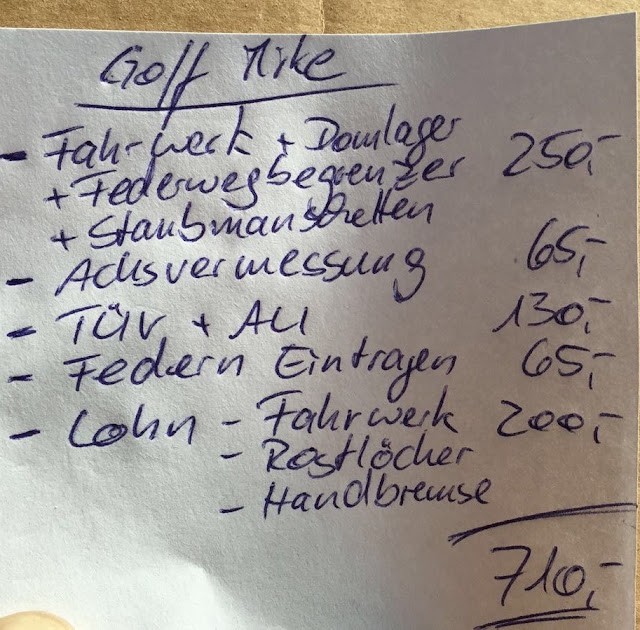 Golf Mike
- Fahrwerk + Domlager
+ Federwegbegrenzer 250,-
+ Staubmanschetten
- Achsvermessung 65,-
- TÜV + AU 130,-
- Federn Eintragen 65,-
- Lohn - Fahrwerk 200,-
- Rostlöcher
- Handbremse
710,-